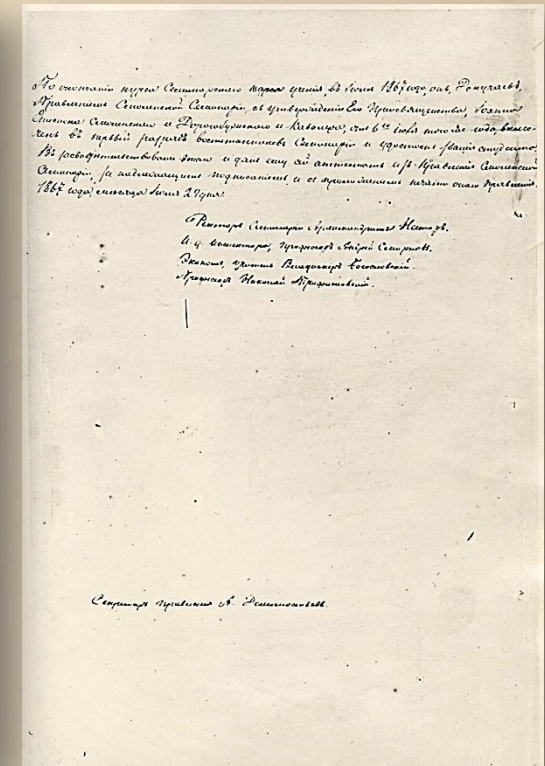 По окончании курса Семинарского ученія, въ Іюнѣ 1867 года, онъ, Докучаевъ,
Правленіемъ Смоленской Семинаріи, съ утвержденія Его Преосвященства, Іоанна
Епископа Смоленскаго и Дорогобужскаго и Кавалера, отъ 6го Іюля того же года, включенъ
въ первый разрядъ воспитанниковъ Семинаріи и удостоенъ званія студента.
Въ засвидѣтельствованіе чего и данъ ему сей аттестатъ изъ Правленія Смоленской
Семинаріи, за надлежащимъ подписаніемъ и съ приложеніемъ печати онаго Правленія.
1867 года, мѣсяца Іюля 27 дня.
Ректоръ Семинаріи Архимандритъ Несторъ.
И. д. Инспектора, Профессоръ Андрей Смирновъ.
Экономъ, учитель Владиміръ
Профессоръ Николай
Секретарь правленія А.